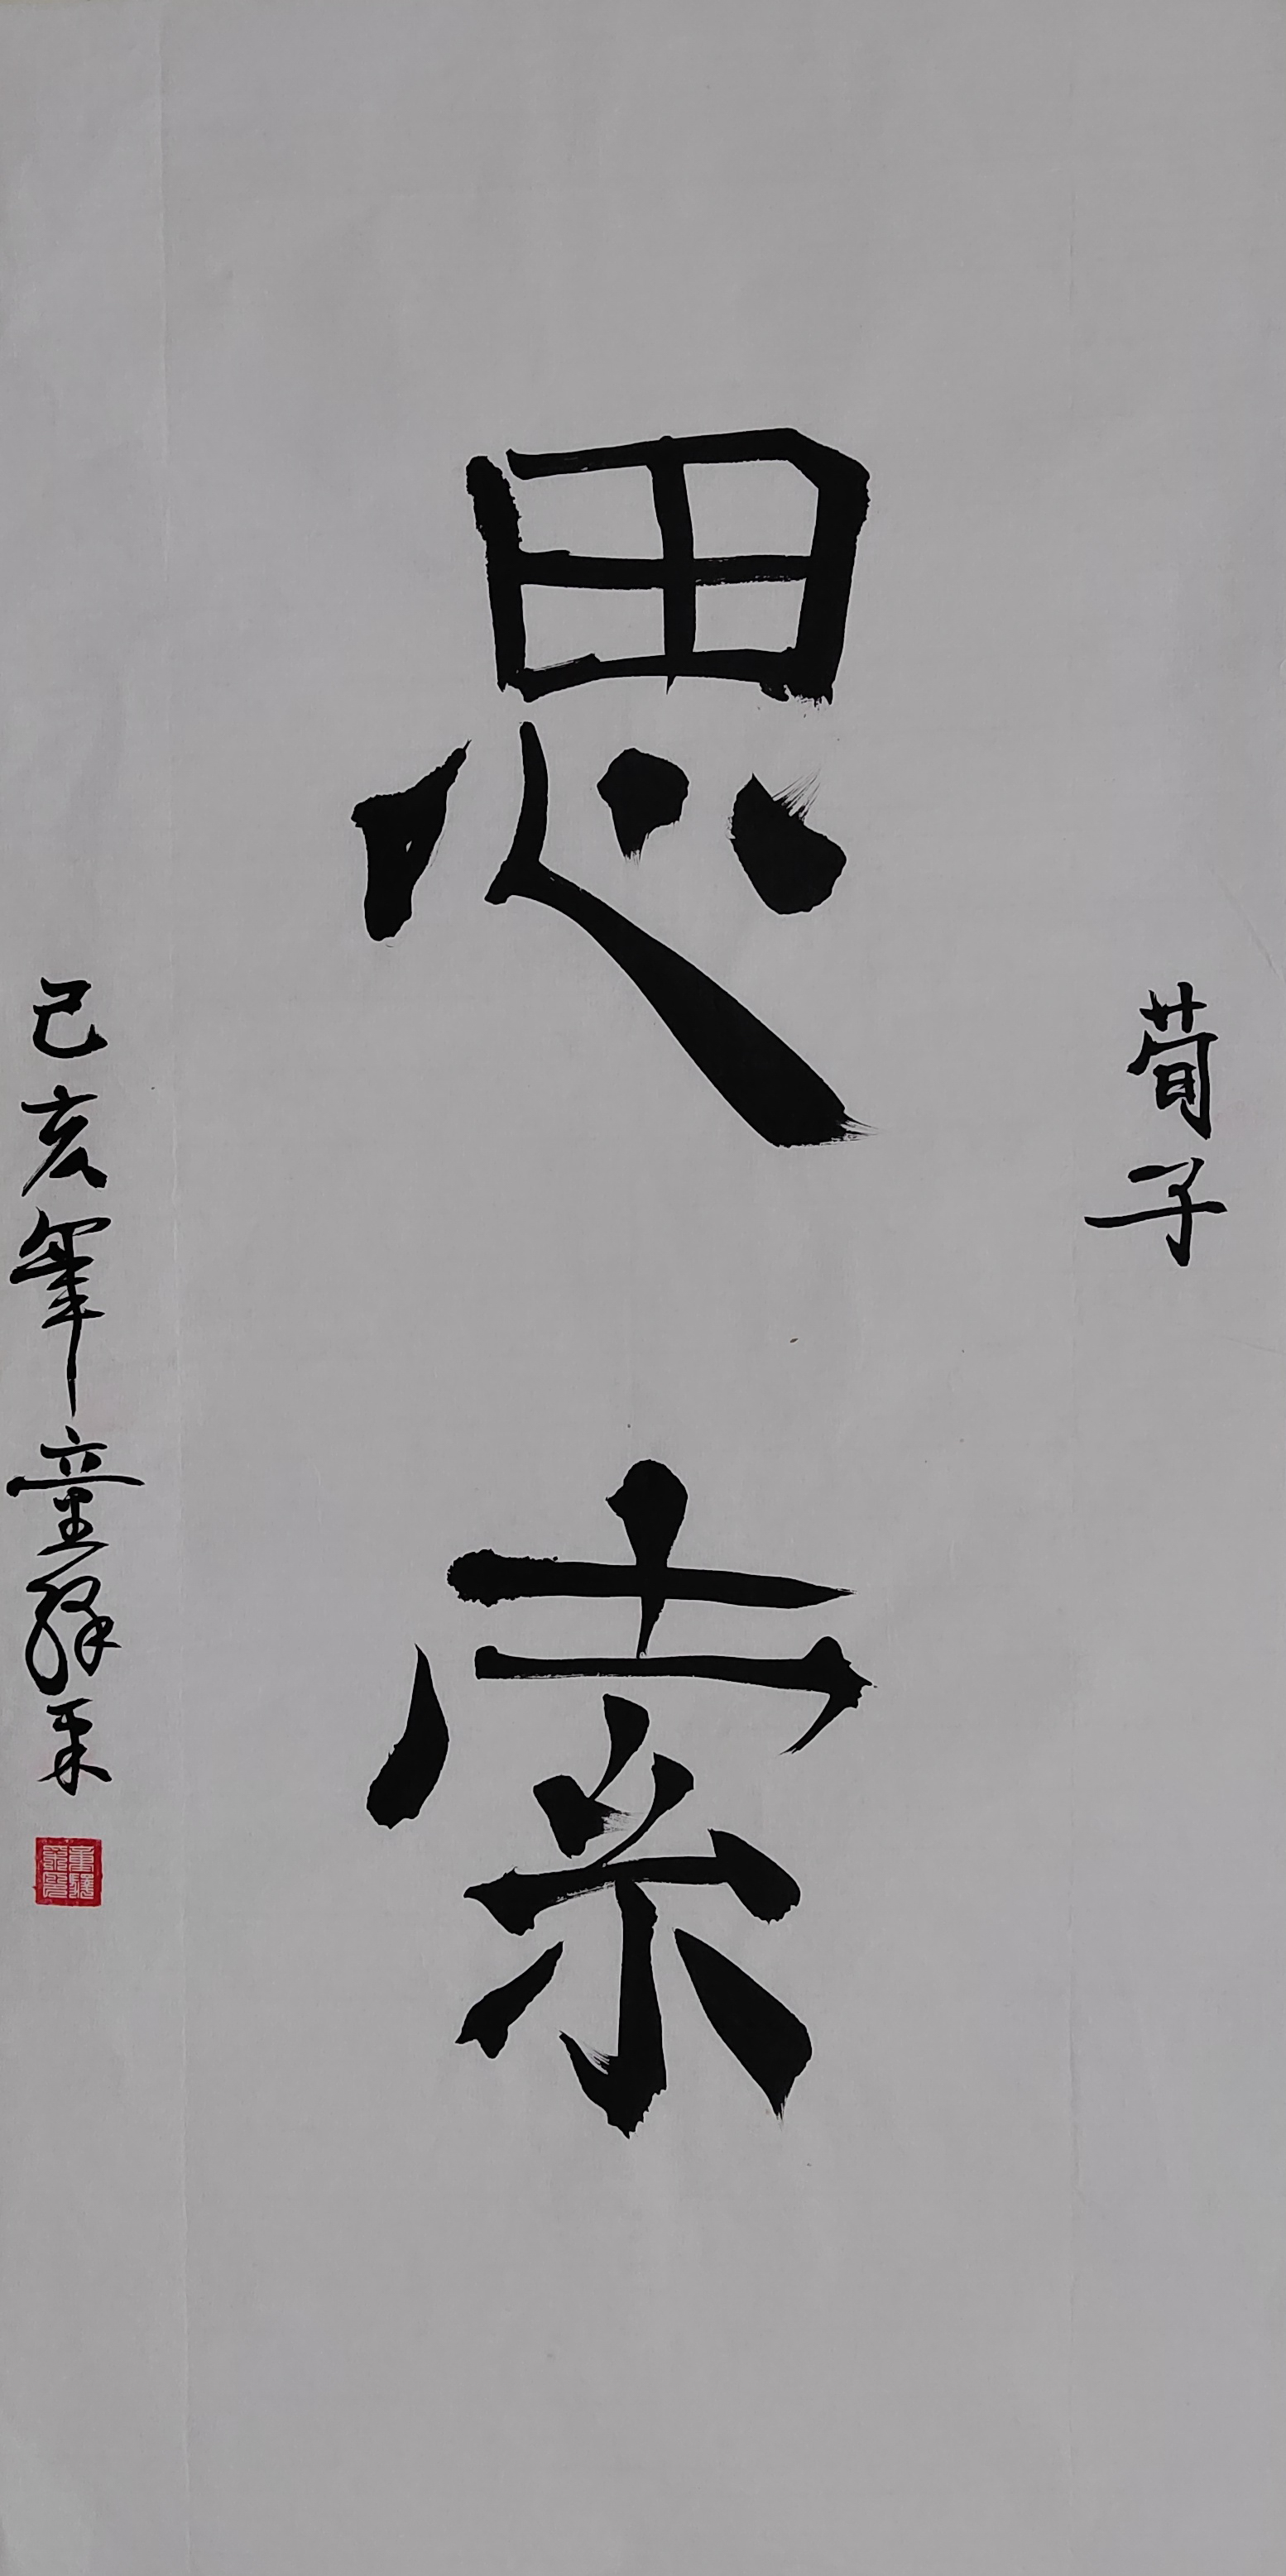 荀子
思索
己亥年童释采